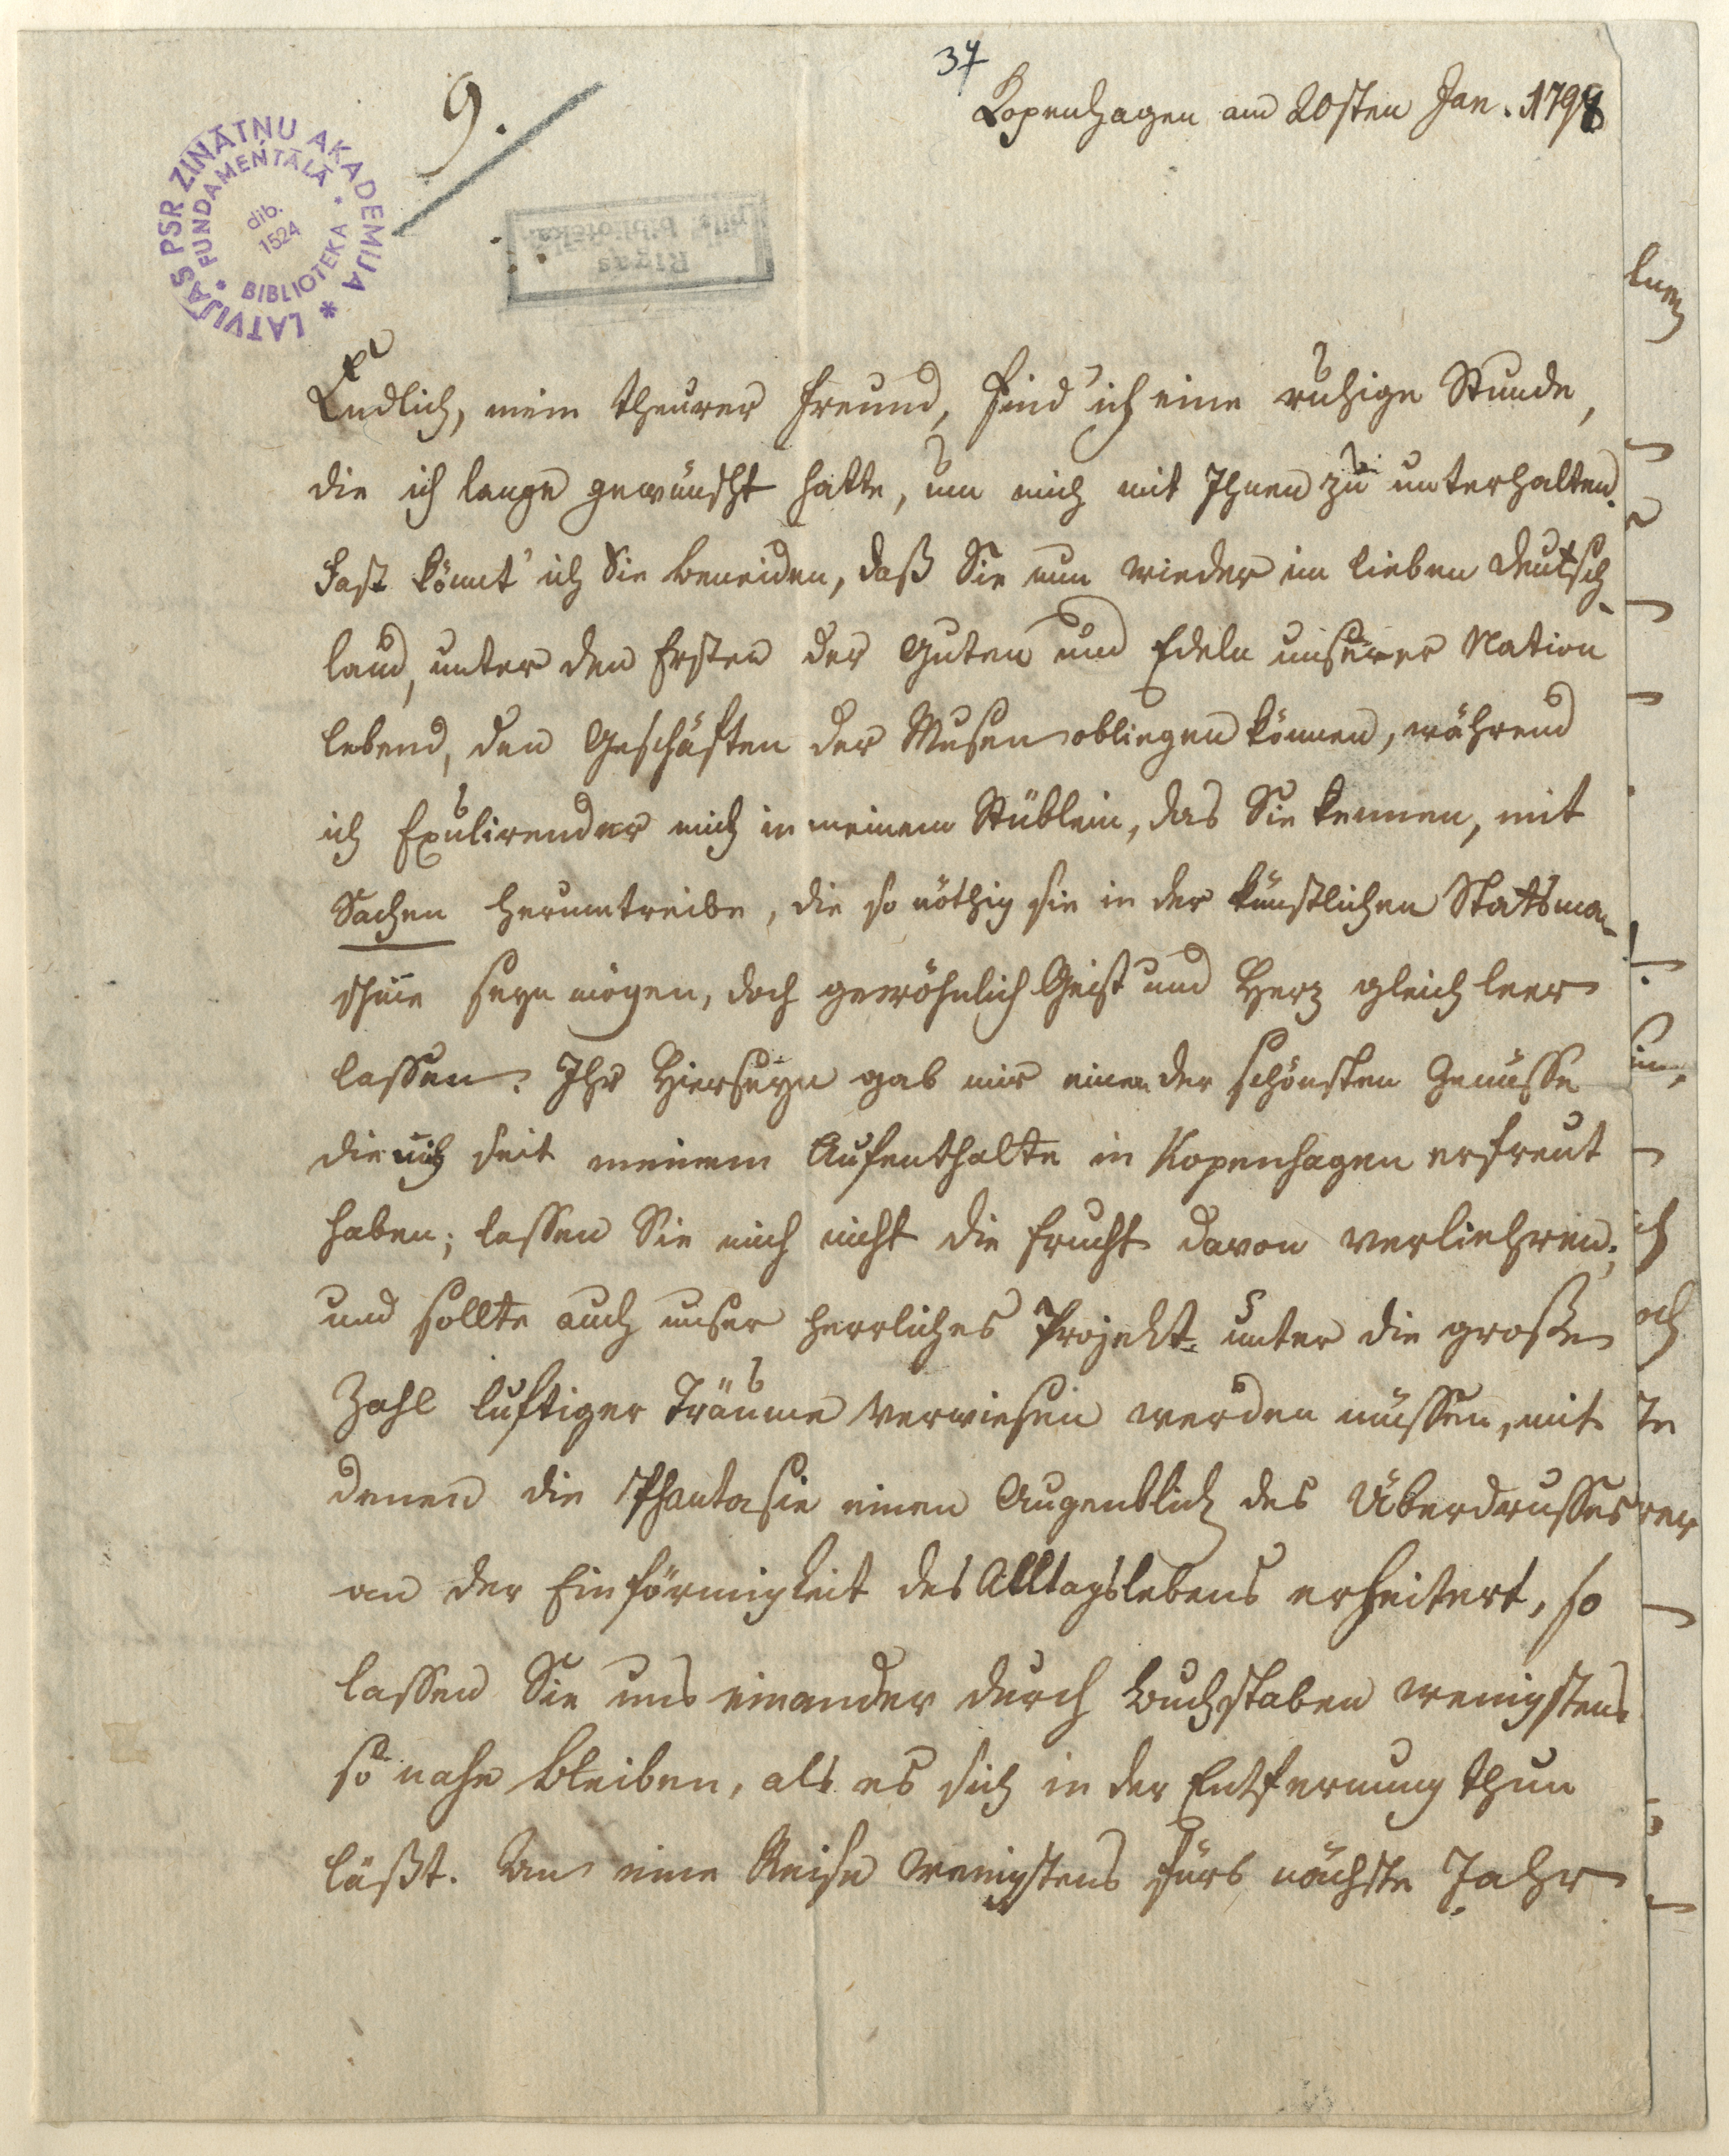 37
Kopenhagen am 20sten Jan. 1798
9.
LATVIJAS PSR ZINĀTŅU AKADEMIJA *
* FUNDAMENTĀLĀ * BIBLIOTEKA
dib.
1524
Rīgas
pils. bibliotēka.
Endlich, mein theurer Freund, find' ich eine ruhige Stunde,
die ich lange gewünscht hatte, um mich mit Ihnen zu unterhalten.
Fast könnt' ich Sie beneiden, daß Sie nun wieder im lieben Deutsch-
land, unter den Ersten der Guten und Edeln unserer Nation
lebend, den Geschäften der Musen obliegen können, während
ich Exulirender mich in meinem Stüblein, das Sie kennen, mit
Sachen herumtreibe, die so nöthig sie in der künstlichen Statsma-
schine seyn mögen, doch gewöhnlich Geist und Herz gleich leer
lassen. Ihr Hierseyn gab mir einen der schönsten Genüsse
die mich seit meinem Aufenthalte in Kopenhagen erfreut
haben; lassen Sie mich nicht die Frucht davon verliehren;
und sollte auch unser herrliches Projekt unter die große
Zahl luftiger Träume verwiesen werden müssen, mit
denen die Phantasie einen Augenblick des Überdrusses
an der Einförmigkeit des Alltagslebens erheitert, so
lassen Sie uns einander durch Buchstaben wenigstens
so nahe bleiben, als es sich in der Entfernung thun
läßt. An eine Reise wenigstens fürs nächste Jahr